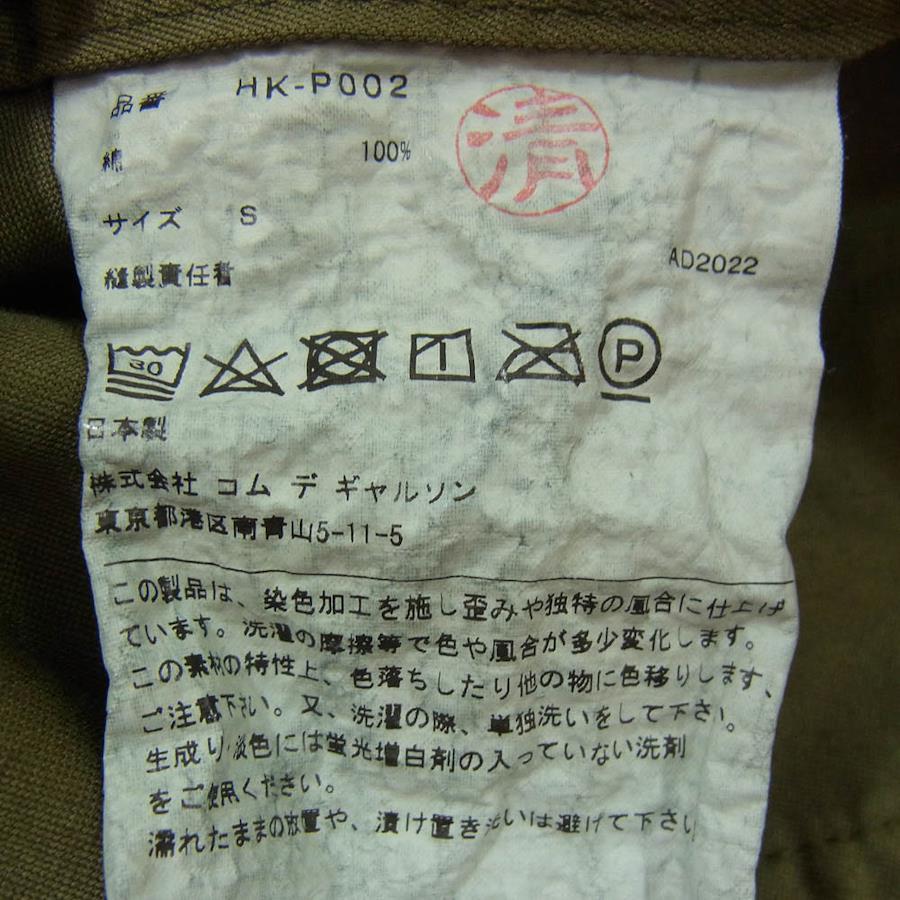 品番 HK-P002
清
綿 100%
サイズ S
AD2022
縫製責任者
30
P
日本製
株式会社 コム デ ギャルソン
東京都港区南青山5-11-5
この製品は、染色加工を施し歪みや独特の風合に仕上げ
ています。洗濯の摩擦等で色や風合が多少変化します。
この素材の特性上、色落ちしたり他の物に色移りします、
ご注意下さい。又、洗濯の際、単独洗いをして下さい。
生成り淡色には蛍光増白剤の入っていない洗剤
をご使用ください。
濡れたままの放置や、漬け置き洗いは避けて下さい